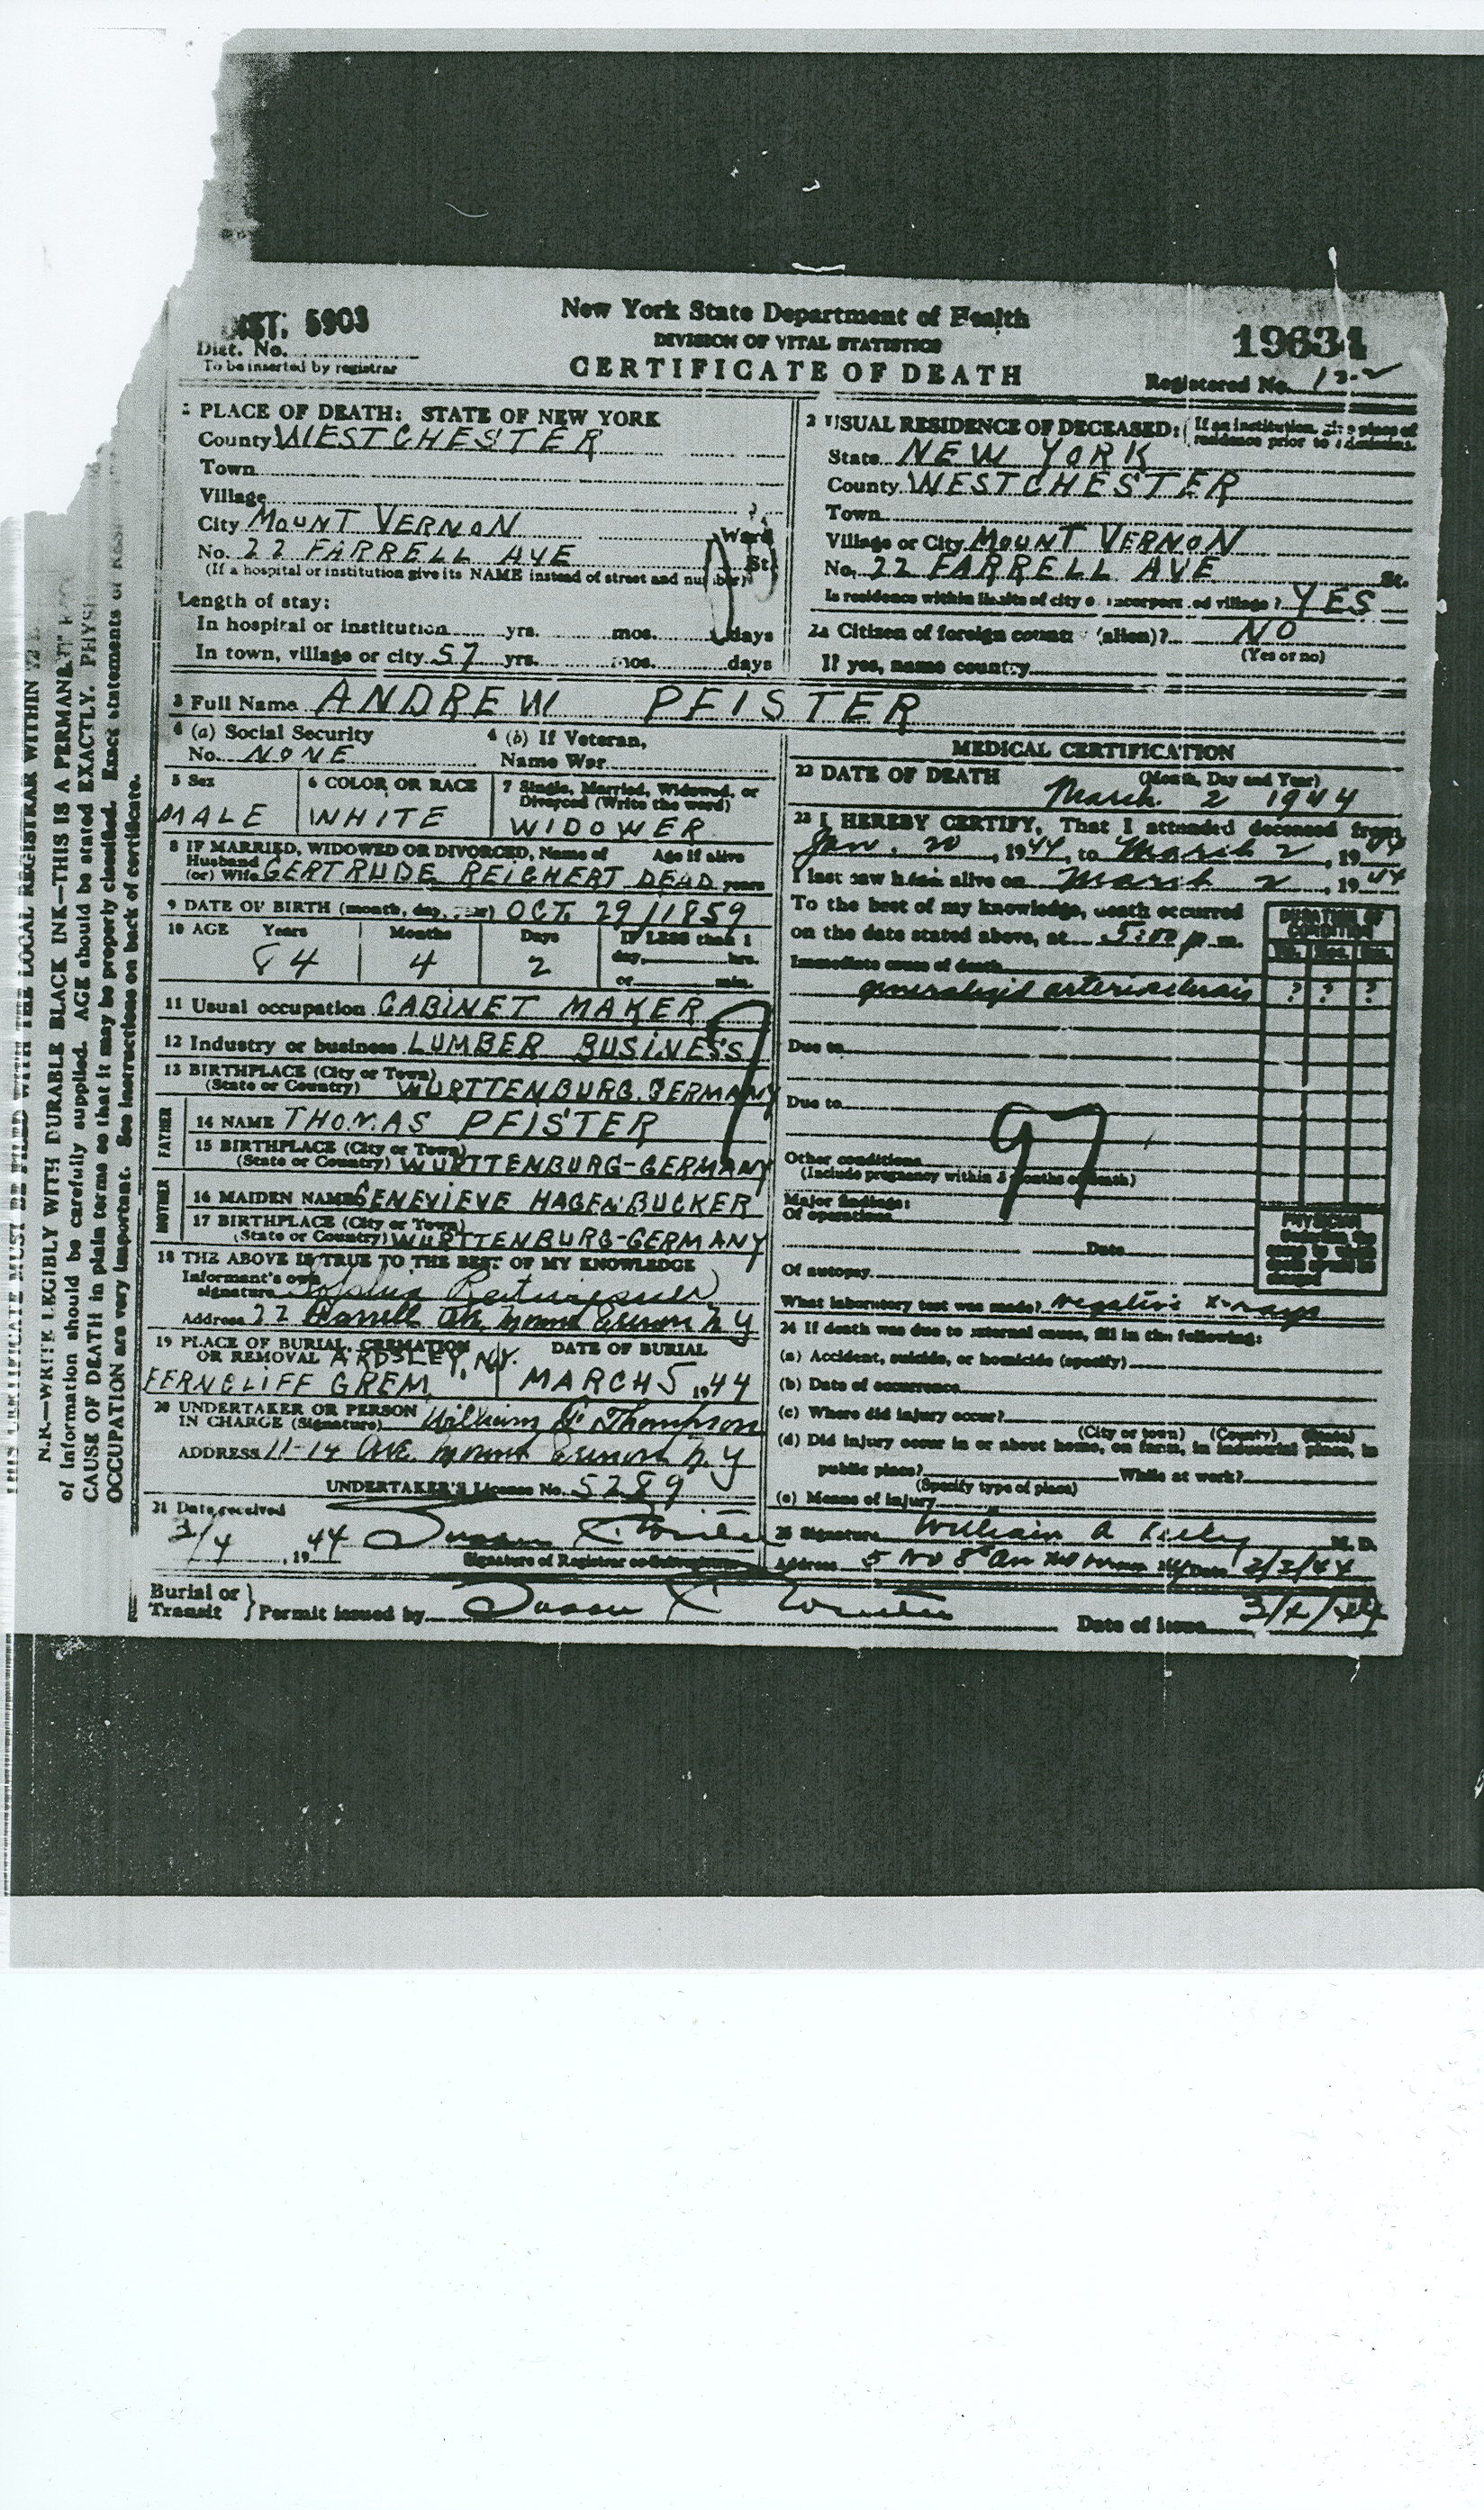 DIST. 5903
New York State Department of Health
DIVISION OF VITAL STATISTICS
CERTIFICATE OF DEATH
19634
Dist. No.
To be inserted by registrar
Registered No. 122
1 PLACE OF DEATH: STATE OF NEW YORK
County WESTCHESTER
Town
Village
City MOUNT VERNON Ward
No. 22 FARRELL AVE St.
(If a hospital or institution give its NAME instead of street and number)
Length of stay:
In hospital or institution yrs. mos. days
In town, village or city 57 yrs. mos. days
2 USUAL RESIDENCE OF DECEASED: (If an institution, give place of
residence prior to admission.
State NEW YORK
County WESTCHESTER
Town
Village or City MOUNT VERNON
No. 22 FARRELL AVE St.
Is residence within limits of city or incorporated village? YES
2a Citizen of foreign country (alien)? NO
(Yes or no)
If yes, name country
3 Full Name ANDREW PFISTER
4 (a) Social Security
No. NONE
4 (b) If Veteran,
Name War
5 Sex
MALE
6 COLOR OR RACE
WHITE
7 Single, Married, Widowed, or
Divorced (Write the word)
WIDOWER
8 IF MARRIED, WIDOWED OR DIVORCED, Name of Age if alive
Husband
(or) Wife GERTRUDE REICHERT DEAD years
9 DATE OF BIRTH (month, day, year) OCT. 29/1859
10 AGE Years Months Days IF LESS than 1
84 4 2 day, hrs.
or min.
11 Usual occupation CABINET MAKER
12 Industry or business LUMBER BUSINESS
13 BIRTHPLACE (City or Town)
(State or Country) WURTTENBURG. GERMANY
FATHER
14 NAME THOMAS PFISTER
15 BIRTHPLACE (City or Town)
(State or Country) WURTTENBURG-GERMANY
MOTHER
16 MAIDEN NAME GENEVIEVE HAGENBUCKER
17 BIRTHPLACE (City or Town)
(State or Country) WURTTENBURG-GERMANY
18 THE ABOVE IS TRUE TO THE BEST OF MY KNOWLEDGE
Informant's own
signature
Address 22 Farrell Ave Mount Vernon N.Y
19 PLACE OF BURIAL, CREMATION
OR REMOVAL ARDSLEY, N.Y.
FERNCLIFF CREM.
DATE OF BURIAL
MARCH 5, 1944
20 UNDERTAKER OR PERSON
IN CHARGE (Signature) William F Thompson
ADDRESS 11-14 Ave. Mount Vernon N.Y
UNDERTAKER'S License No. 5289
21 Date received
3/4, 1944
Signature of Registrar or Subregistrar
MEDICAL CERTIFICATION
22 DATE OF DEATH (Month, Day and Year)
March 2 1944
23 I HEREBY CERTIFY, That I attended deceased from
Jan. 20, 1944, to March 2, 1944
I last saw him alive on March 2, 1944
To the best of my knowledge, death occurred
on the date stated above, at 5:00 p m.
Immediate cause of death
generalized arteriosclerosis ? ? ?
DURATION OF
CONDITION
Yrs. Mos. Dys.
Due to
Due to
97
Other conditions
(Include pregnancy within 3 months of death)
Major findings:
Of operations
Date
Of autopsy
PHYSICIAN
Underline the
cause to which
death should be
charged
What laboratory test was made? negative x-rays
24 If death was due to external cause, fill in the following:
(a) Accident, suicide, or homicide (specify)
(b) Date of occurrence
(c) Where did injury occur?
(City or town) (County) (State)
(d) Did injury occur in or about home, on farm, in industrial place, in
public place? While at work?
(Specify type of place)
(e) Means of injury
25 Signature William A M. D.
Address 5 No 8th Av Date 3/3/44
Burial or
Transit } Permit issued by
Date of issue 3/4/44
THIS CERTIFICATE MUST BE FILED WITH THE LOCAL REGISTRAR WITHIN 72
N.B.—WRITE LEGIBLY WITH DURABLE BLACK INK—THIS IS A PERMANENT
of information should be carefully supplied. AGE should be stated EXACTLY.
CAUSE OF DEATH in plain terms so that it may be properly classified. Exact statements of
OCCUPATION are very important. See instructions on back of certificate.